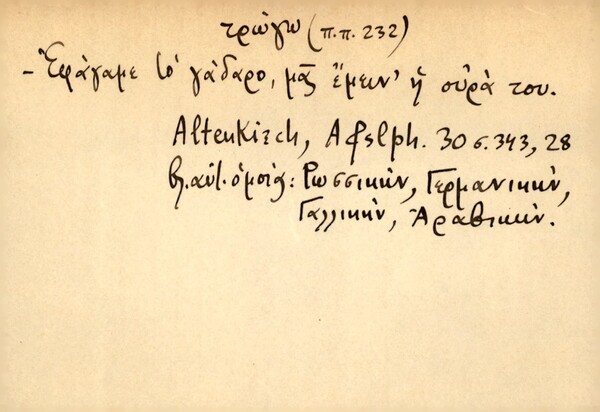 τρώγω (π.π. 232)
- Ἐφάγαμε τὸ γάδαρο, μᾶς ἔμειν' ἡ οὐρά του.
Altenkirch, Afslph. 30 σ. 343, 28
βλ. αὐτ. ὁμοία: Ρωσσικήν, Γερμανικήν,
Γαλλικήν, Ἀραβικήν.